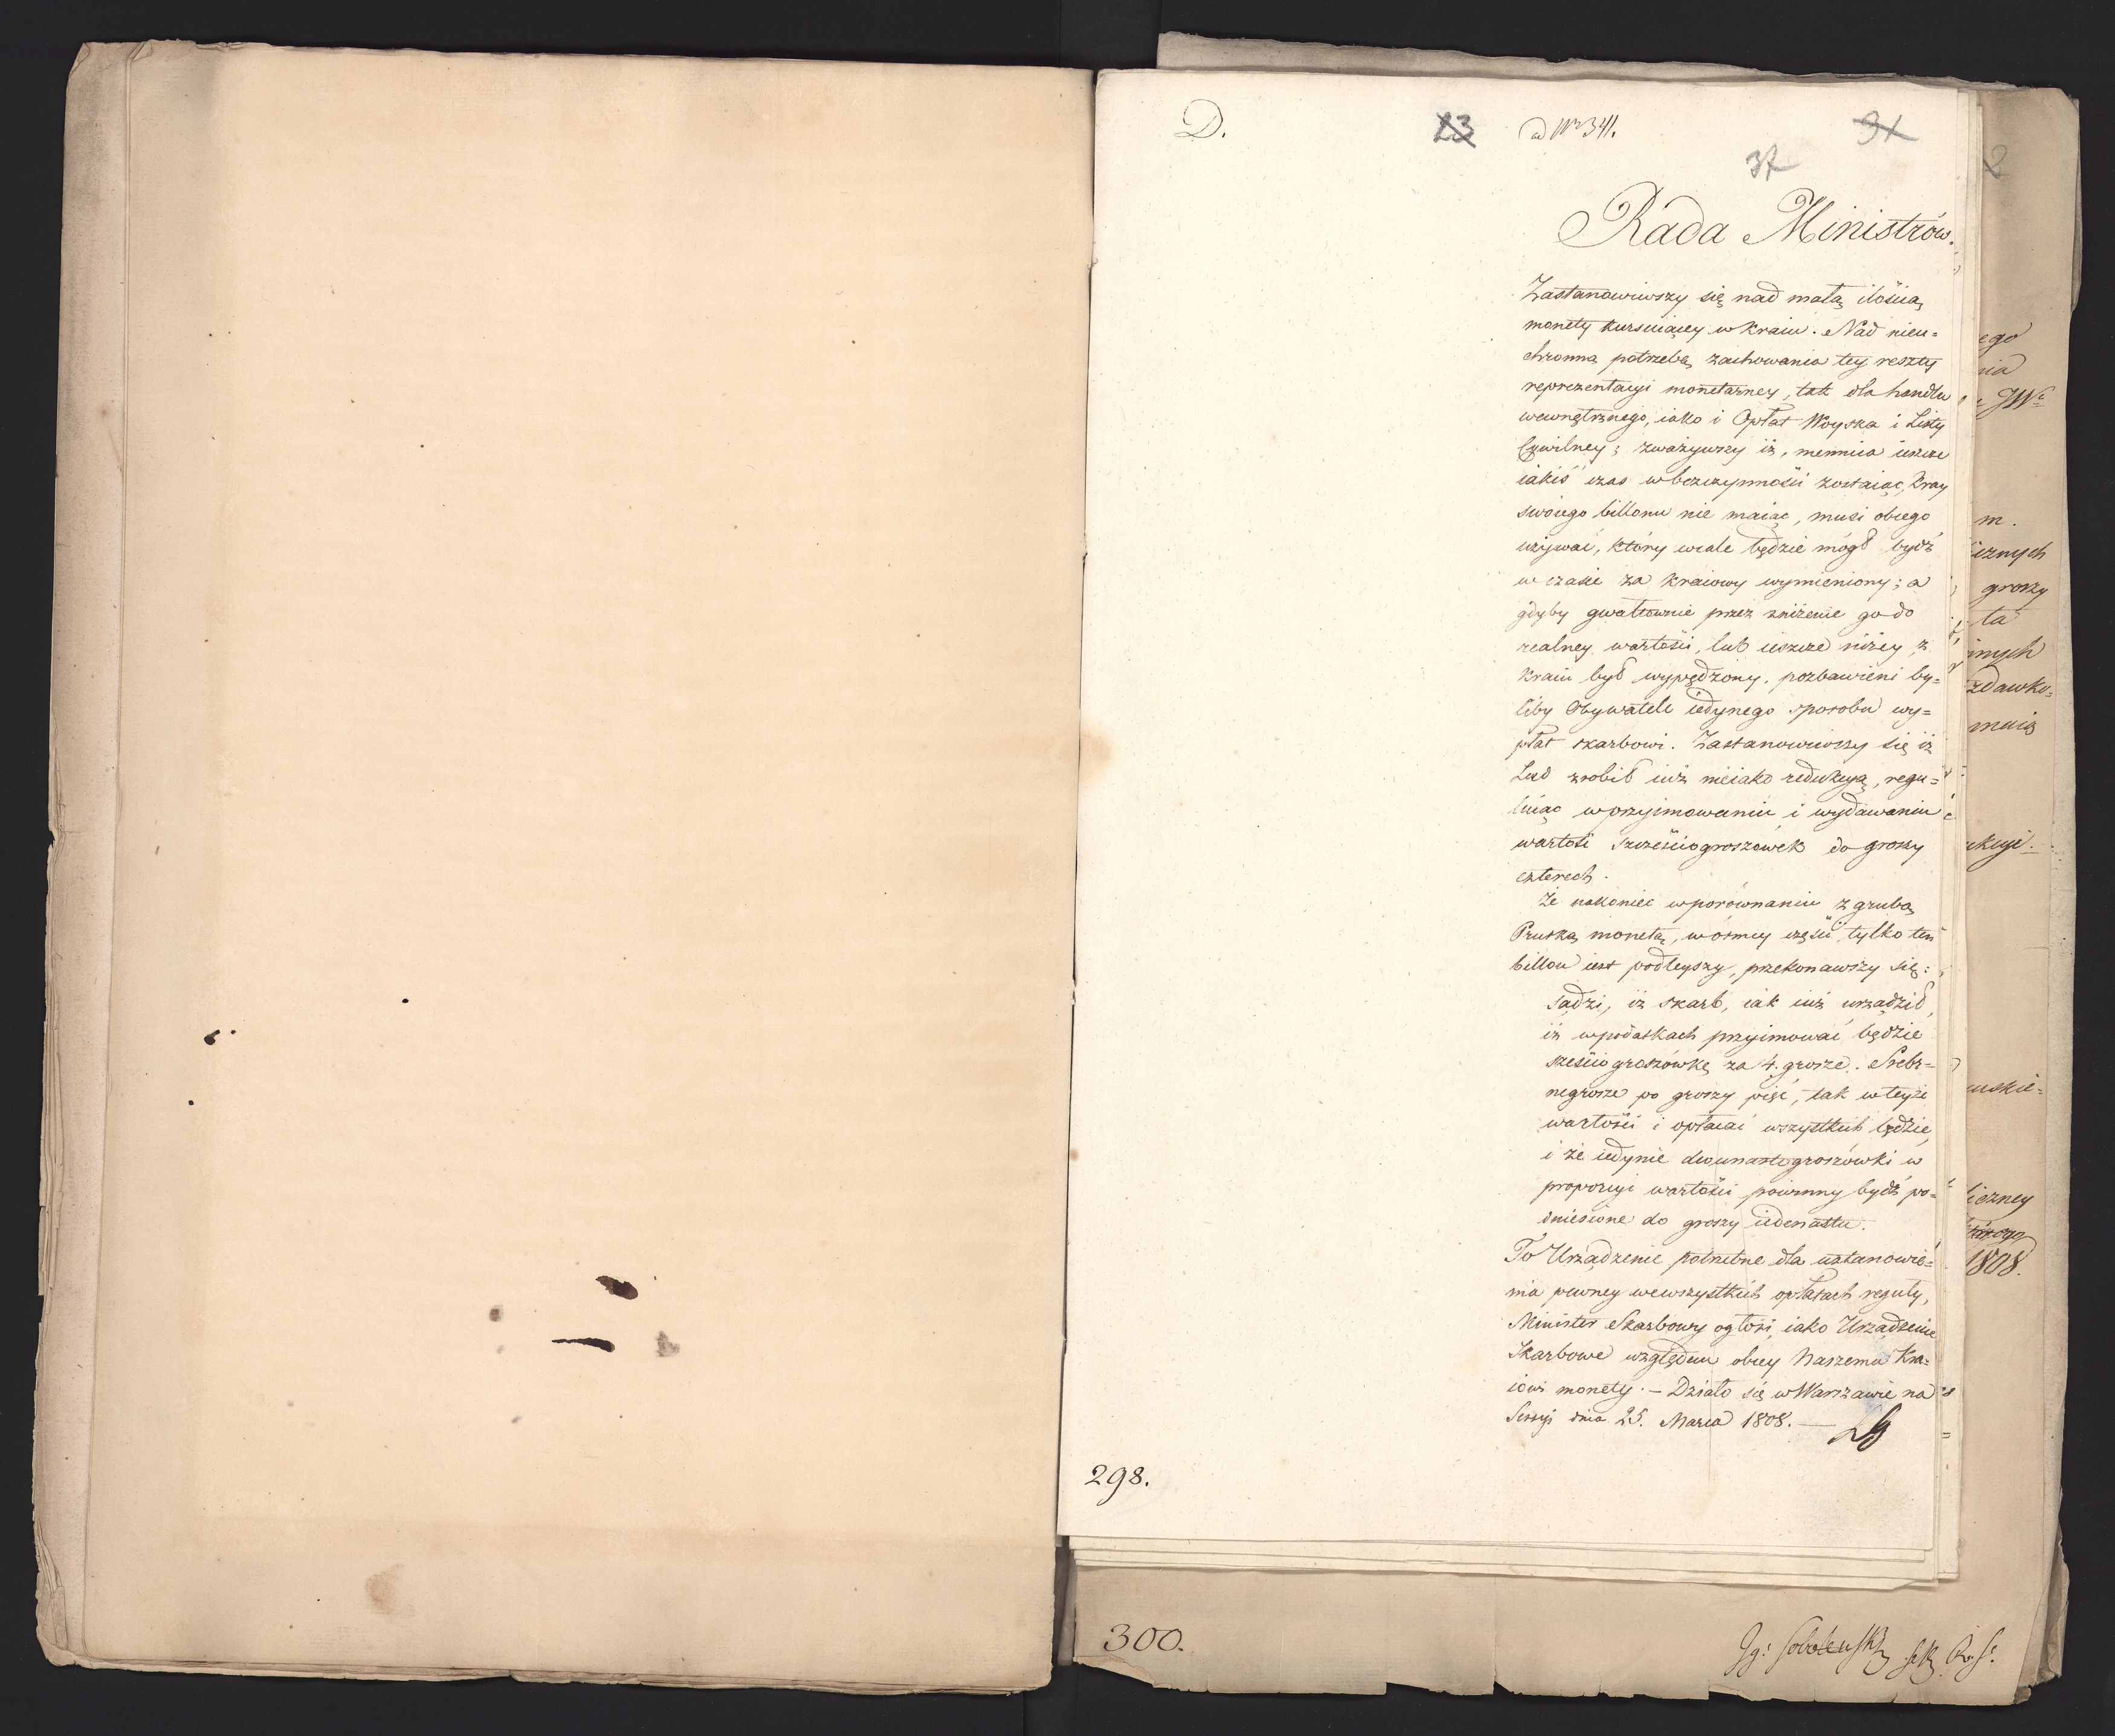 D.
23
ad Nr 341.
31
37
Rada Ministrów.
Zastanowiwszy się nad małą ilością
monety kursuiącey w Kraiu. Nad nieu=
chronną potrzebą zachowania tey reszty
reprezentacyi monetarney, tak dla handlu
wewnętrznego, iako i Opłat Woyska i Listy
Cywilney; zważywszy iż, mennica ieszcze
iakiś czas w bezczynności zostaiąc, Kray
swoiego billonu nie maiąc, musi obcego
używać, który wcale będzie mógł bydź
w czasie za Kraiowy wymieniony; a
gdyby gwałtownie przez zniżenie go do
realney wartości, lub ieszcze niżey z
Kraiu był wypędzony. pozbawieni by=
liby Obywatele iedynego sposobu wy=
płat skarbowi. Zastanowiwszy się iż
Lud zrobił iuż nieiako redukcyą, regu=
luiąc w przyimowaniu i wydawaniu
wartość Sześciogroszówek do groszy
czterech.
Że nakoniec w porównaniu z grubą
Pruską monetą, w ósmey części tylko ten
billon iest podleyszy, przekonawszy się:
Sądzi, iż skarb, iak iuż urządził,
iż w podatkach przyimować będzie
sześciogroszówkę za 4. grosze. Srebr=
negrosze po groszy pięć, tak w teyże
wartości i opłacać wszystkich będzie,
i że iedynie dwunastogroszówki w
proporcyi wartości powinny bydź po=
dniesione do groszy iedenastu.
To Urządzenie potrzebne dla ustanowie=
nia pewney we wszystkich opłatach reguły,
Minister Skarbowy ogłosi, iako Urządzenie
Skarbowe względem obcey Naszemu Kra=
iowi monety. – Działo się w Warszawie na
Sessyi dnia 25. Marca 1808. —
298.
2
ego
nia
JWo
m.
icznych
groszy
ta
innych
zdawko=
maią
ukcyi.
wskie=
iczney
1808.
300.
Jg: Sobolewski